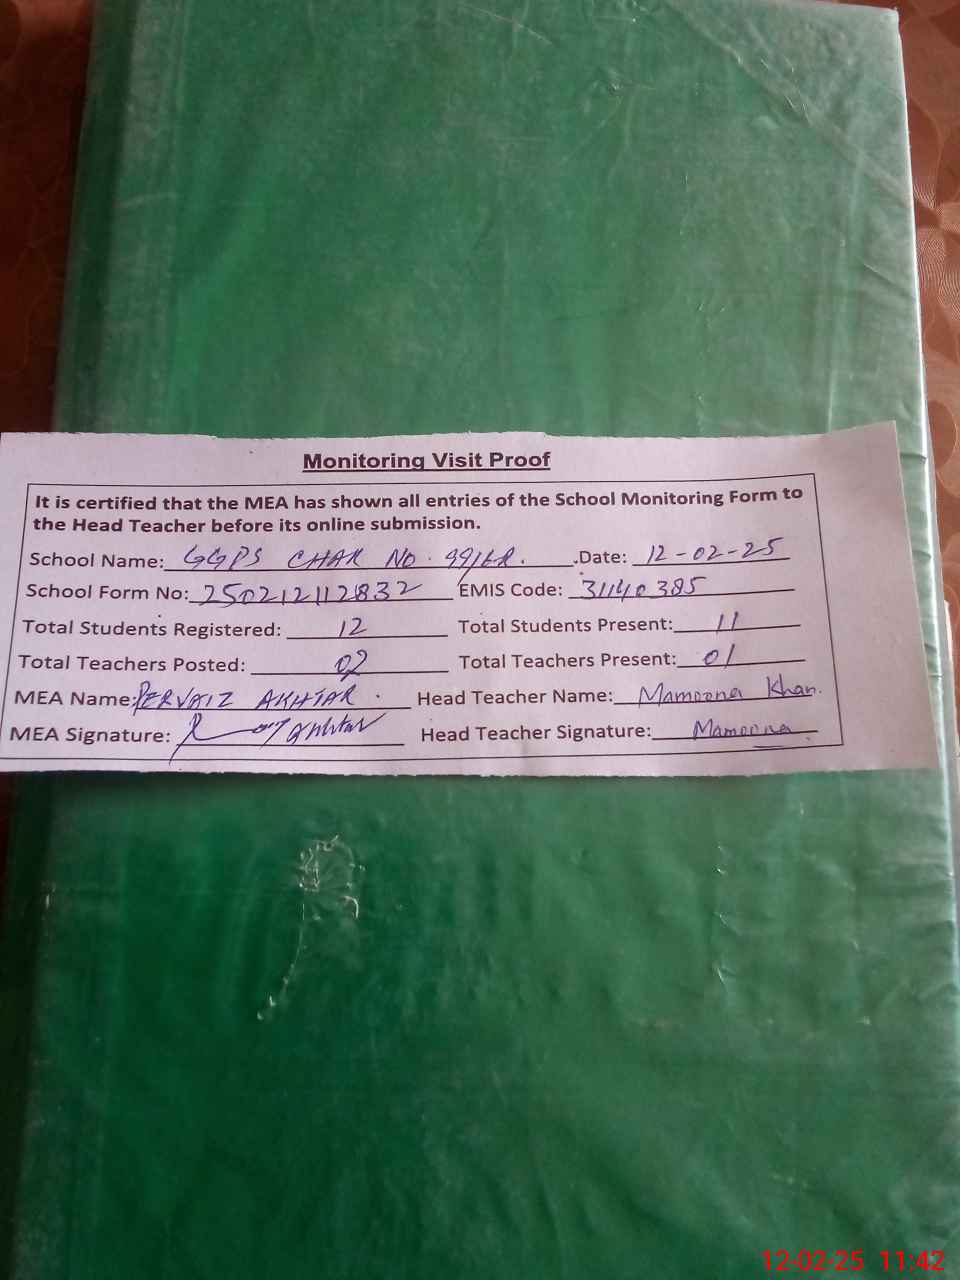 Monitoring Visit Proof
It is certified that the MEA has shown all entries of the School Monitoring Form to
the Head Teacher before its online submission.
School Name: GGPS CHAK NO. 99/6R. Date: 12-02-25
School Form No: 250212112832 EMIS Code: 31140385
Total Students Registered: 12 Total Students Present: 11
Total Teachers Posted: 02 Total Teachers Present: 01
MEA Name: PERVAIZ AKHTAR. Head Teacher Name: Mamoona Khan.
MEA Signature: Akhtar Head Teacher Signature: Mamoona
12-02-25 11:42